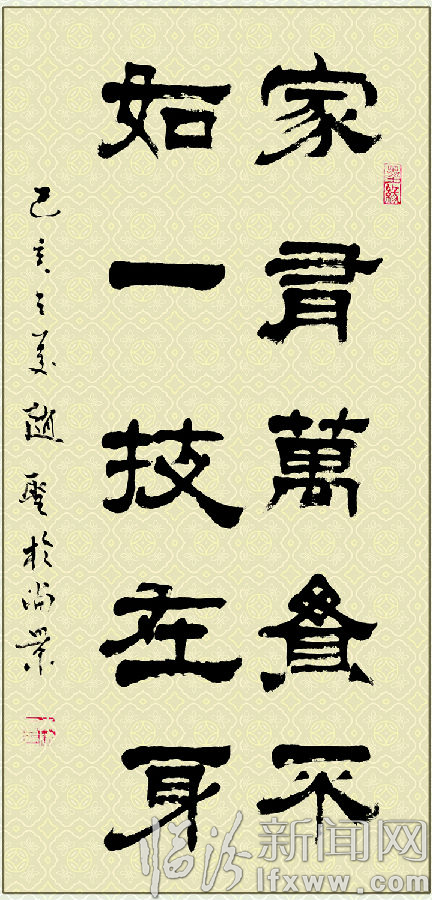 家有萬貫不
如一技在身
己亥之夏趙於尚業
临汾新闻网
lfxww.com